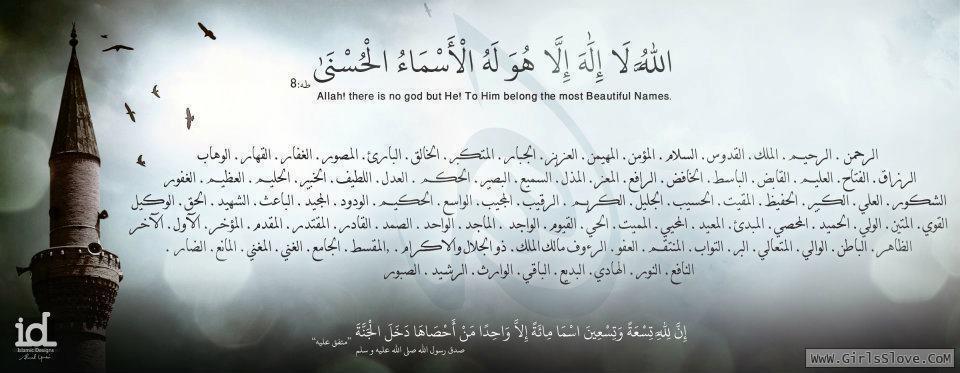 اللَّهُ لَا إِلَٰهَ إِلَّا هُوَ لَهُ الْأَسْمَاءُ الْحُسْنَىٰ
طه:8
Allah! there is no god but He! To Him belong the most Beautiful Names.
الرحمن . الرحيم . الملك . القدوس . السلام . المؤمن . المهيمن . العزيز . الجبار . المتكبر . الخالق . البارئ . المصور . الغفار . القهار . الوهاب
الرزاق . الفتاح . العليم . القابض . الباسط . الخافض . الرافع . المعز . المذل . السميع . البصير . الحكم . العدل . اللطيف . الخبير . الحليم . العظيم . الغفور
الشكور . العلي . الكبير . الحفيظ . المقيت . الحسيب . الجليل . الكريم . الرقيب . المجيب . الواسع . الحكيم . الودود . المجيد . الباعث . الشهيد . الحق . الوكيل
القوي . المتين . الولي . الحميد . المحصي . المبدئ . المعيد . المحيي . المميت . الحي . القيوم . الواجد . الماجد . الواحد . الصمد . القادر . المقتدر . المقدم . المؤخر . الأول . الآخر
الظاهر . الباطن . الوالي . المتعالي . البر . التواب . المنتقم . العفو . الرءوف مالك الملك . ذو الجلال والاكرام . المقسط . الجامع . الغني . المغني . المانع . الضار .
النافع . النور . الهادي . البديع . الباقي . الوارث . الرشيد . الصبور
إِنَّ لِلَّهِ تِسْعَةً وَتِسْعِينَ اسْمًا مِائَةً إِلاَّ وَاحِدًا مَنْ أَحْصَاهَا دَخَلَ الْجَنَّةَ "متفق عليه"
صدق رسول الله صلى الله عليه و سلم
id
Islamic Designs
www.GirlsSlove.com